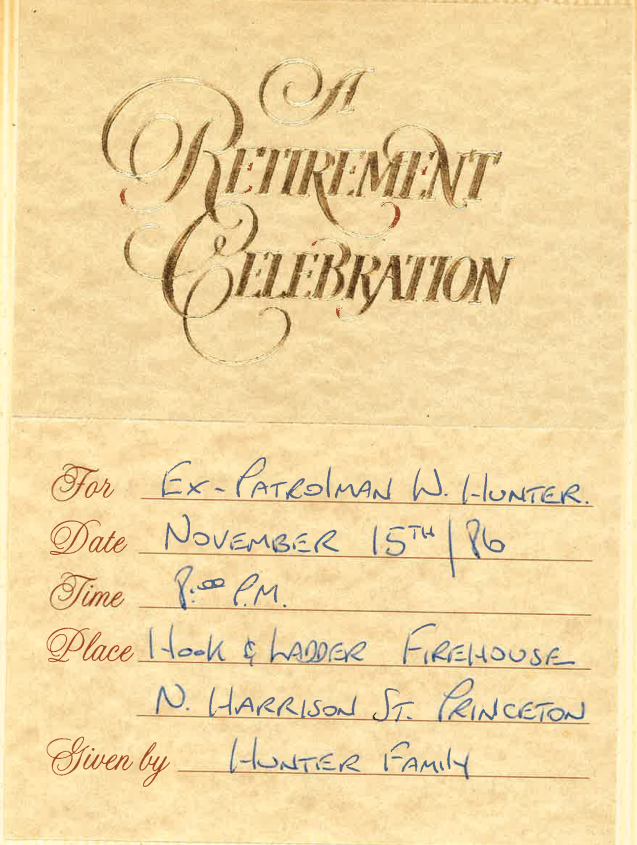 A
RETIREMENT
CELEBRATION
For Ex-Patrolman W. Hunter.
Date November 15TH/86
Time 8:00 P.M.
Place Hook & Ladder Firehouse
N. Harrison St. Princeton
Given by Hunter Family